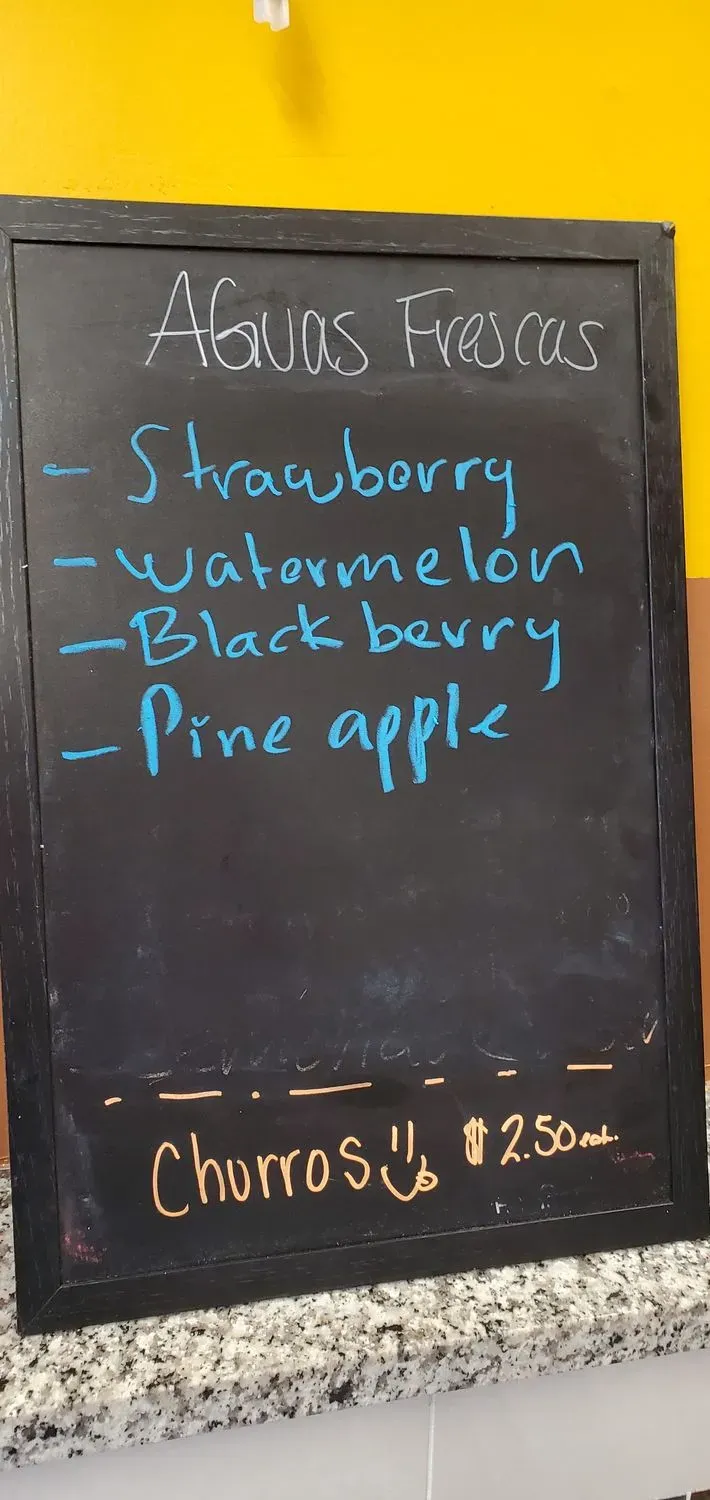 AGuas Frescas
- Strawberry
- watermelon
- Black berry
- Pine apple
Churros $2.50 each.